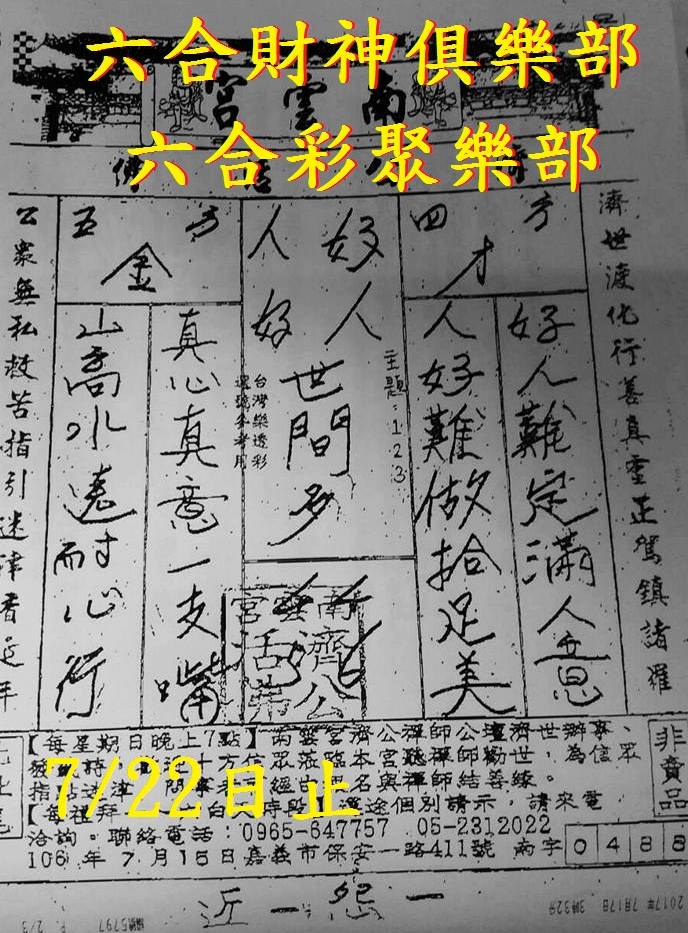 六合財神俱樂部
南雲宮
六合彩聚樂部
濟世渡化行善真靈正駕鎮諸羅
四方
才
好人難定滿人意
人好難做拾足美
好人
人好
世間多
主題:123
台灣樂透彩
選號參考用
南雲宮
濟公
活
五方
金
真心真意一支嘴
山高水遠耐心行
公眾無私救苦指引迷津香延年
【每星期日晚上7點】南雲宮濟公禪師公壇濟世辦事、
詩 十方 眾蒞臨本宮聽禪師勸世,為信眾
指點迷津 問事 名與禪師結善緣。
7/22日止
個別請示,請來電
洽詢。聯絡電話:0965-647757 05-2312022
106年7月16日嘉義市保安一路411號 南字 0488
非賣品
近一怨一
2017年 7月17日 3時32分
編號5797 P. 2/3